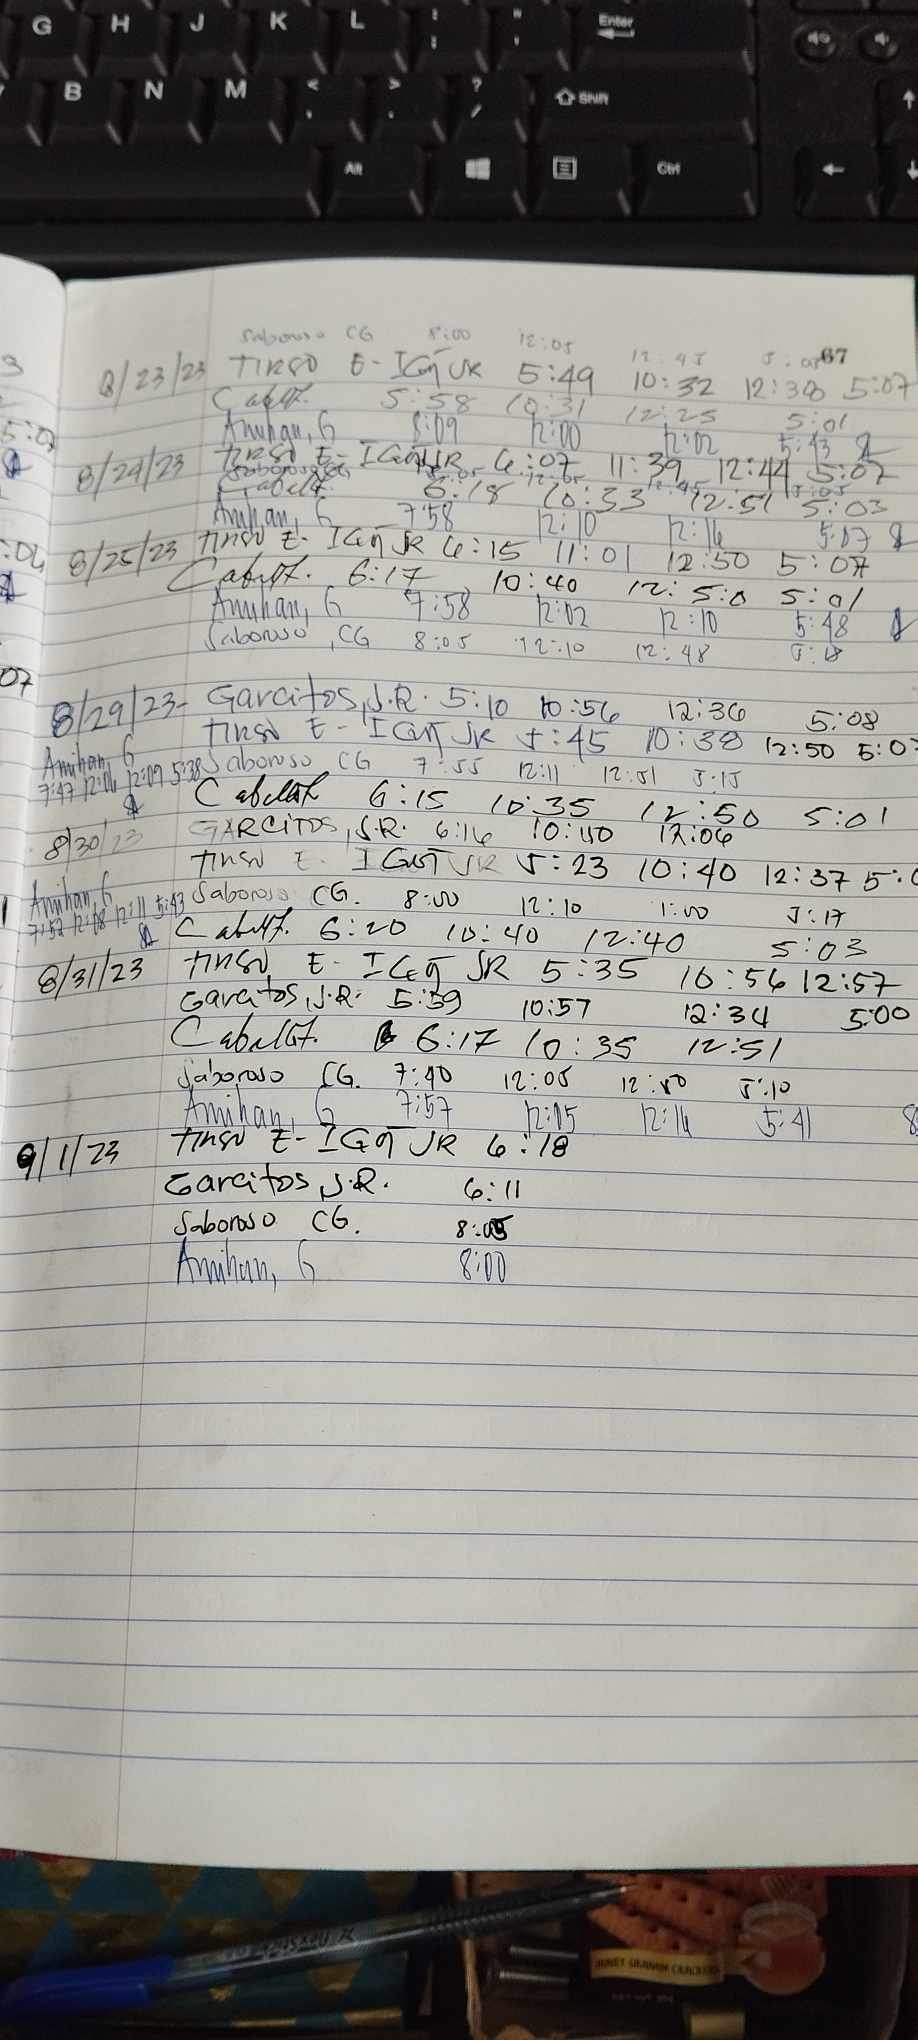 G H J K L : ; " ' Enter
B N M < , > . ? / Shift
Alt Ctrl
Saboroso CG 8:00 12:05 12:45 5:05 67
8/23/23 TIRSO E- JR 5:49 10:32 12:38 5:07
5:58 10:31 12:25 5:01
Amihan, G 8:09 12:00 12:02 5:43
8/24/23 TIRSO E- JR 6:07 11:39 12:44 5:07
Saboroso CG 12:05 12:45 5:05
6:18 10:33 12:51 5:03
Amihan, G 7:58 12:10 12:16 5:07
8/25/23 TIRSO E- JR 6:15 11:01 12:50 5:07
6:17 10:40 12:50 5:01
Amihan, G 7:58 12:02 12:10 5:48
Saboroso, CG 8:05 12:10 12:48 5:18
07
8/29/23- Garcitos, J.R. 5:10 10:56 12:36 5:08
TIRSO E- JR 5:45 10:38 12:50 5:0
Amihan, G
Saboroso CG 7:55 12:11 12:51 5:15
7:47 12:06 12:09 5:38
6:15 10:35 12:50 5:01
8/30/23 GARCITOS, J.R. 6:16 10:40 12:06
TIRSO E. JR 5:23 10:40 12:37 5:0
Amihan, G
Saboroso CG. 8:00 12:10 1:00 5:17
7:52 12:08 12:11 5:43
6:20 10:40 12:40 5:03
8/31/23 TIRSO E- JR 5:35 10:56 12:57
Garcitos, J.R. 5:59 10:57 12:34 5:00
6:17 10:35 12:51
Saboroso CG. 7:40 12:05 12:50 5:10
Amihan, G 7:57 12:05 12:16 5:41
9/1/23 TIRSO E- JR 6:18
Garcitos, J.R. 6:11
Saboroso CG. 8:05
Amihan, G 8:00
HONEY GRAHAM CRACKERS